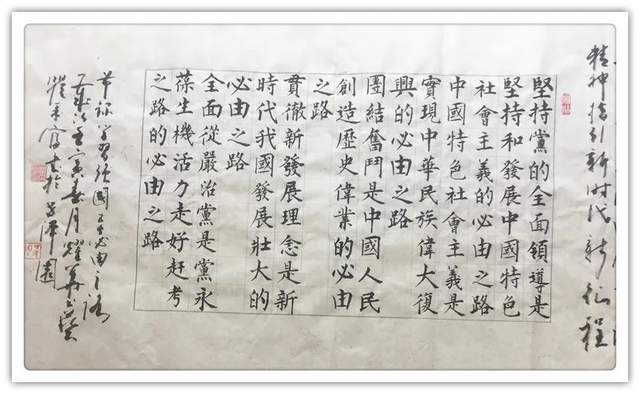 精神指引新时代新征程
堅持黨的全面領導是
堅持和發展中國特色
社會主義的必由之路
中國特色社會主義是
實現中華民族偉大復
興的必由之路
團結奮鬥是中國人民
創造歷史偉業的必由
之路
貫徹新發展理念是新
時代我國發展壯大的
必由之路
全面從嚴治黨是黨永
葆生機活力走好赶考
之路的必由之路
学習强國五必由之路
壬寅春月